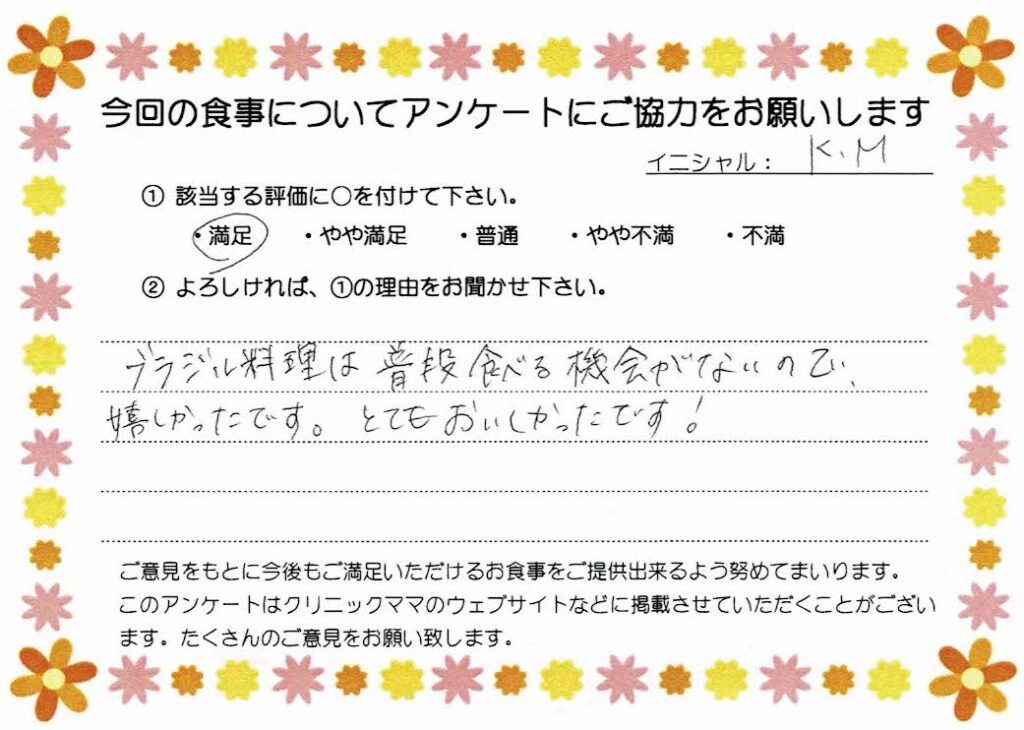 今回の食事についてアンケートにご協力をお願いします
イニシャル： K.M
① 該当する評価に○を付けて下さい。
・満足 ・やや満足 ・普通 ・やや不満 ・不満
② よろしければ、①の理由をお聞かせ下さい。
ブラジル料理は普段食べる機会がないので、
嬉しかったです。とてもおいしかったです！
ご意見をもとに今後もご満足いただけるお食事をご提供出来るよう努めてまいります。
このアンケートはクリニックママのウェブサイトなどに掲載させていただくことがござい
ます。たくさんのご意見をお願い致します。